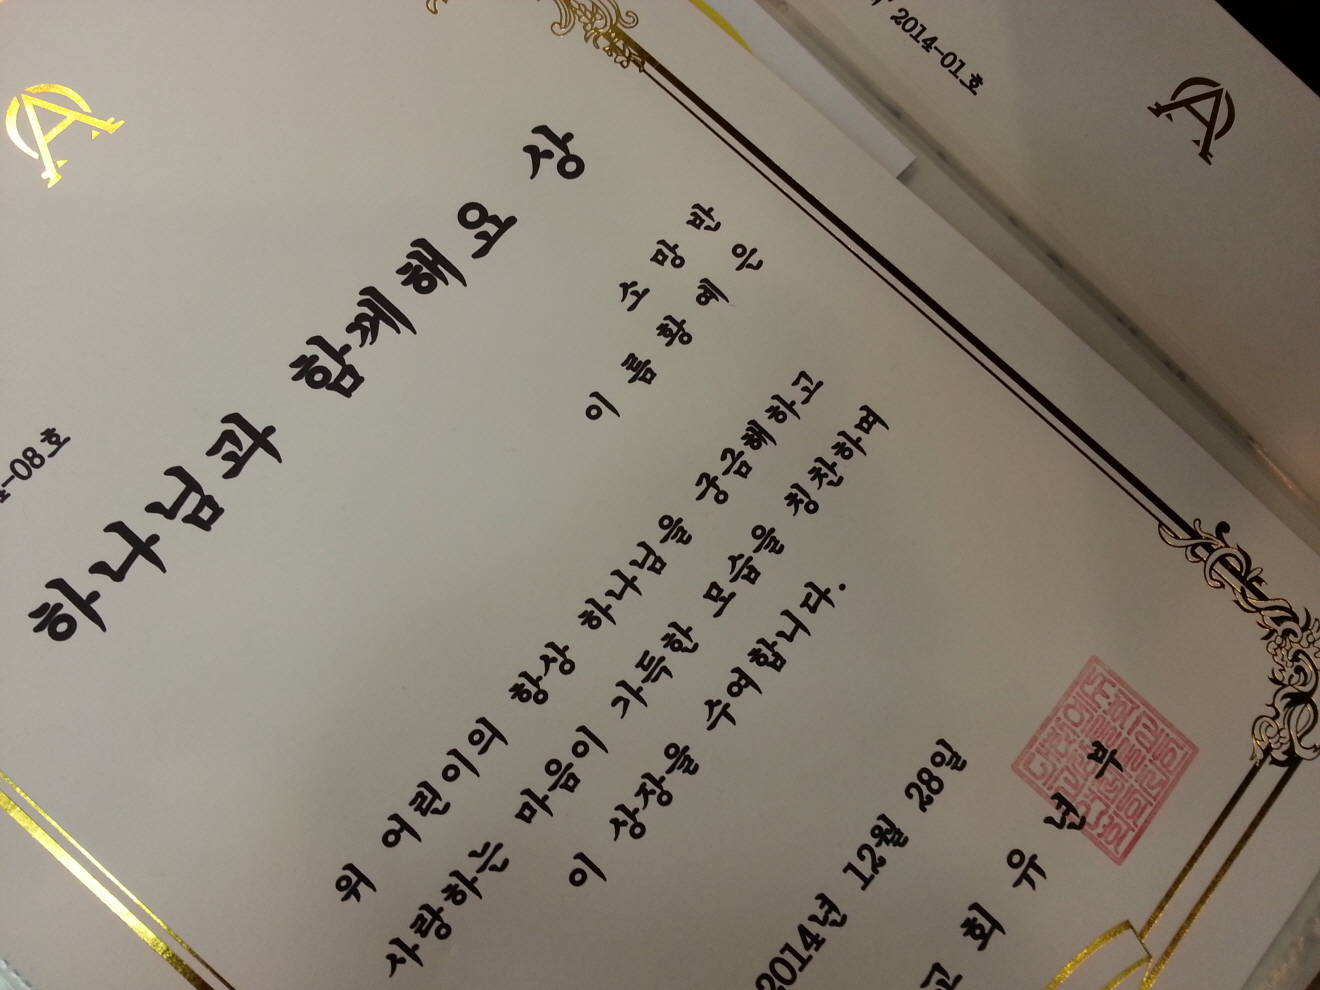 -08호
하나님과 함께해요 상
소 망 반
이 름 황 예 은
위 어린이의 항상 하나님을 궁금해하고
사랑하는 마음이 가득한 모습을 칭찬하며
이 상장을 수여합니다.
2014년 12월 28일
교 회 유 년 부
2014-01호